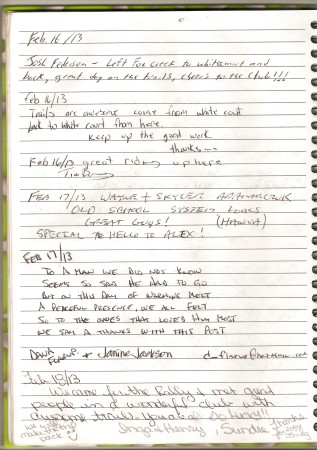 Feb. 16/13
Josh Pedersen - Left Fox creek to whitecourt and
back, great day on the trails, cheers to the club!!!
Feb 16/13
Trails are awesome came from white court
back to white court from here.
Keep up the good work
thanks
Feb 16/13 great riding up here
FEB 17/13 WAYNE + SKYLER
OLD SCHOOL SYSTEM
GREAT GUYS!
SPECIAL HELLO TO ALEX!
FEB 17/13
TO A MAN WE DID NOT KNOW
SEEMS SO SAD HE HAD TO GO
BUT ON THIS DAY OF WARMING MELT
A PEACEFUL PRESENCE, WE ALL FELT
SO TO THE ONES THAT LOVED HIM MOST
WE SAY A THANKS WITH THIS POST
DANA + Janine Jackson
Feb 18/13
We came for the Rally & met great
people in a wonderful club with
awesome trails. You are all So Lucky!!
we will be
back
Henry, Sundre
thanks